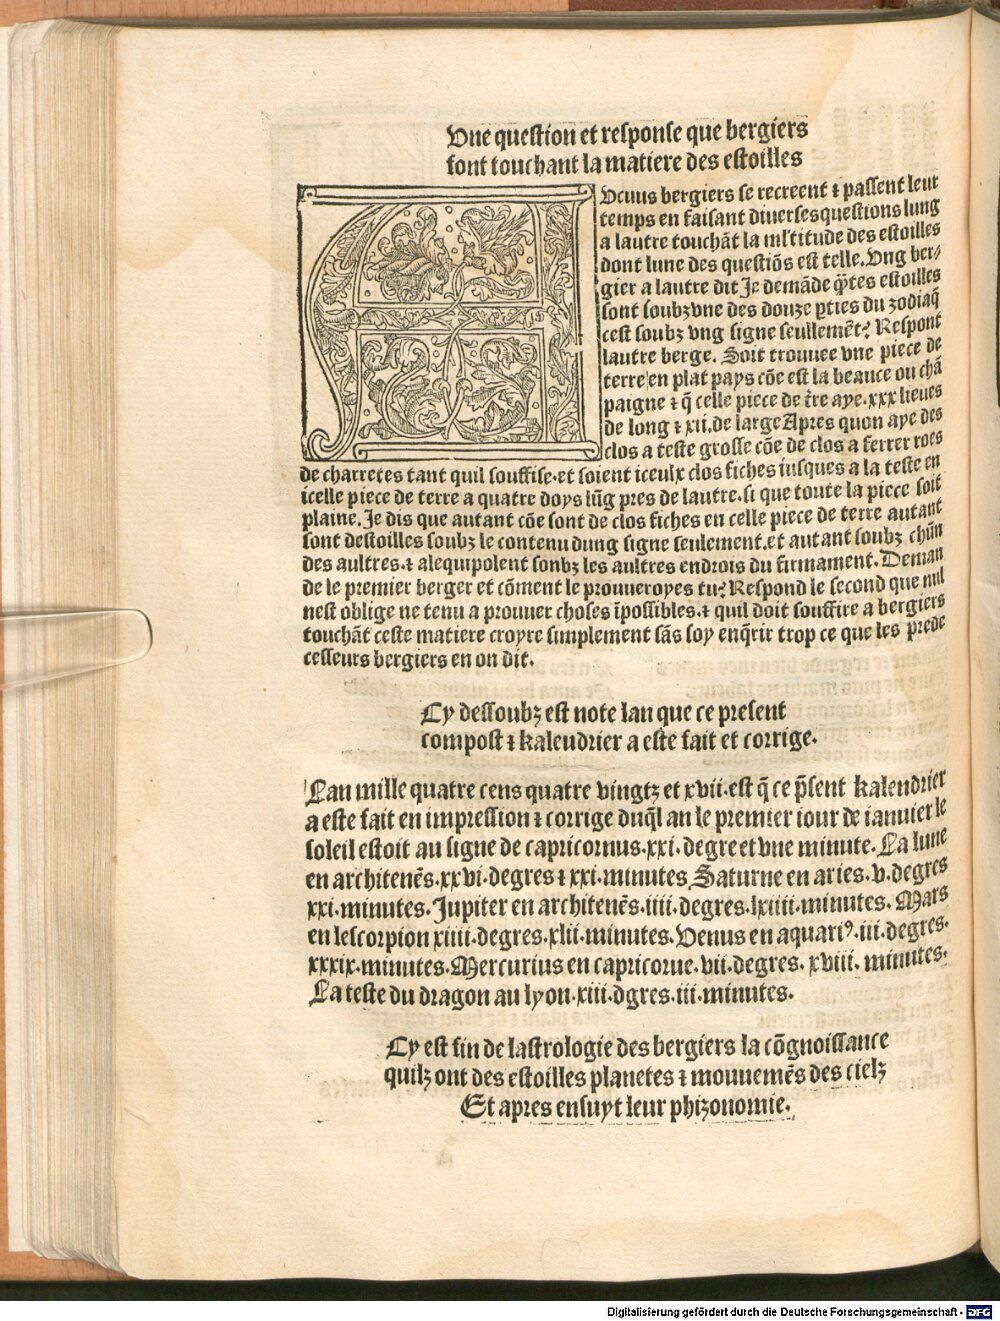 Une question et response que bergiers
font touchant la matiere des estoilles
Aucuns bergiers se recreent ⁊ passent leur
temps en faisant diuerses questions lung
a lautre touchãt la ml'titude des estoilles
dont lune des questiõs est telle. Ung ber⸗
gier a lautre dit Je demãde q̃tes estoilles
sont soubz vne des douze ꝑties du zodiaq̃
cest soubz vng signe seullemẽt? Respont
lautre berge. Soit trouuee vne piece de
terre en plat pays cõe est la beauce ou chã
paigne ⁊ q̃ celle piece de t̃re aye.xxx lieues
de long ⁊ xii.de large Apres quon aye des
clos a teste grosse cõe de clos a ferrer roes
de charretes tant quil souffise.et soient iceulx clos fiches iusques a la teste en
icelle piece de terre a quatre doys lũg pres de lautre.si que toute la piece soit
plaine. Je dis que autant cõe sont de clos fiches en celle piece de terre autant
sont destoilles soubz le contenu dung signe seulement.et autant soubz chũn
des aultres.⁊ alequipolent sonbz les aultres endrois du firmament. Deman
de le premier berger et cõment le prouueroyes tu? Respond le second que nul
nest oblige ne tenu a prouuer choses ĩpossibles.⁊ quil doit souffire a bergiers
touchãt ceste matiere croyre simplement sãs soy enq̃rir trop ce que les prede
cesseurs bergiers en on dit.
Cy dessoubz est note lan que ce present
compost ⁊ kaleudrier a este fait et corrige.
Lan mille quatre cens quatre vingtz et xvii.est q̃ ce p̃sent kalendrier
a este fait en impression ⁊ corrige duq̃l an le premier iour de ianuier le
soleil estoit au signe de capricornus.xxi.degre et vne minute. La lune
en architenẽs.xxvi.degres ⁊ xxi.minutes Saturne en aries.v.degres
xxi.minutes. Jupiter en architenẽs.iiii.degres.lxiiii.minutes. Mars
en lescorpion xiiii.degres.xlii.minutes. Venus en aquariꝰ.iii.degres.
xxxix.minutes. Mercurius en capricorne.vii.degres. xviii. minutes.
La teste du dragon au lyon.xiii.dgres.iii.minutes.
Cy est fin de lastrologie des bergiers la cõgnoissance
quilz ont des estoilles planetes ⁊ mouuemẽs des cielz
Et apres ensuyt leur phizonomie.
Digitalisierung gefördert durch die Deutsche Forschungsgemeinschaft - DFG